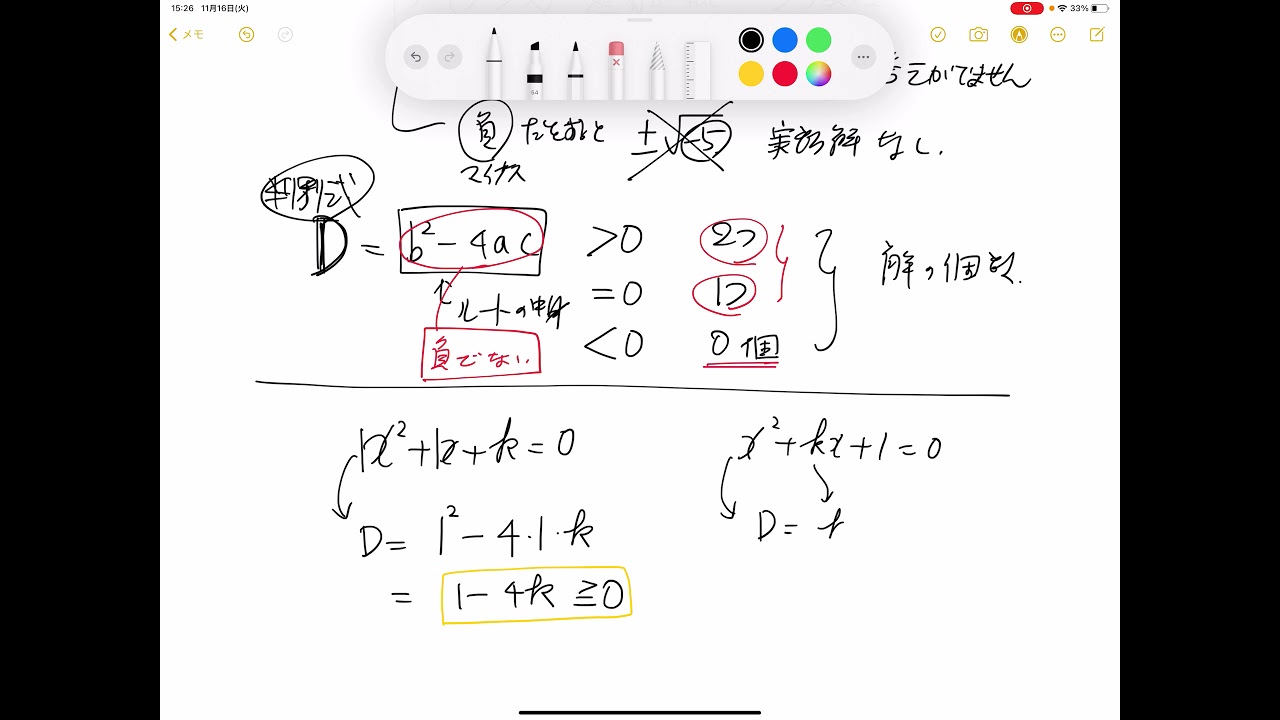 15:26 11月16日(火)
33%
メモ
64
がでません
負 だとすると ±√-5 実数解 なし.
マイナス
判別式
D = b²-4ac >0 2つ
ルートの中身 =0 1つ 解の個数.
負でない <0 0個
1x²+1x+k=0
D= 1²-4・1・k
= 1-4k ≧0
x²+kx+1=0
D= k